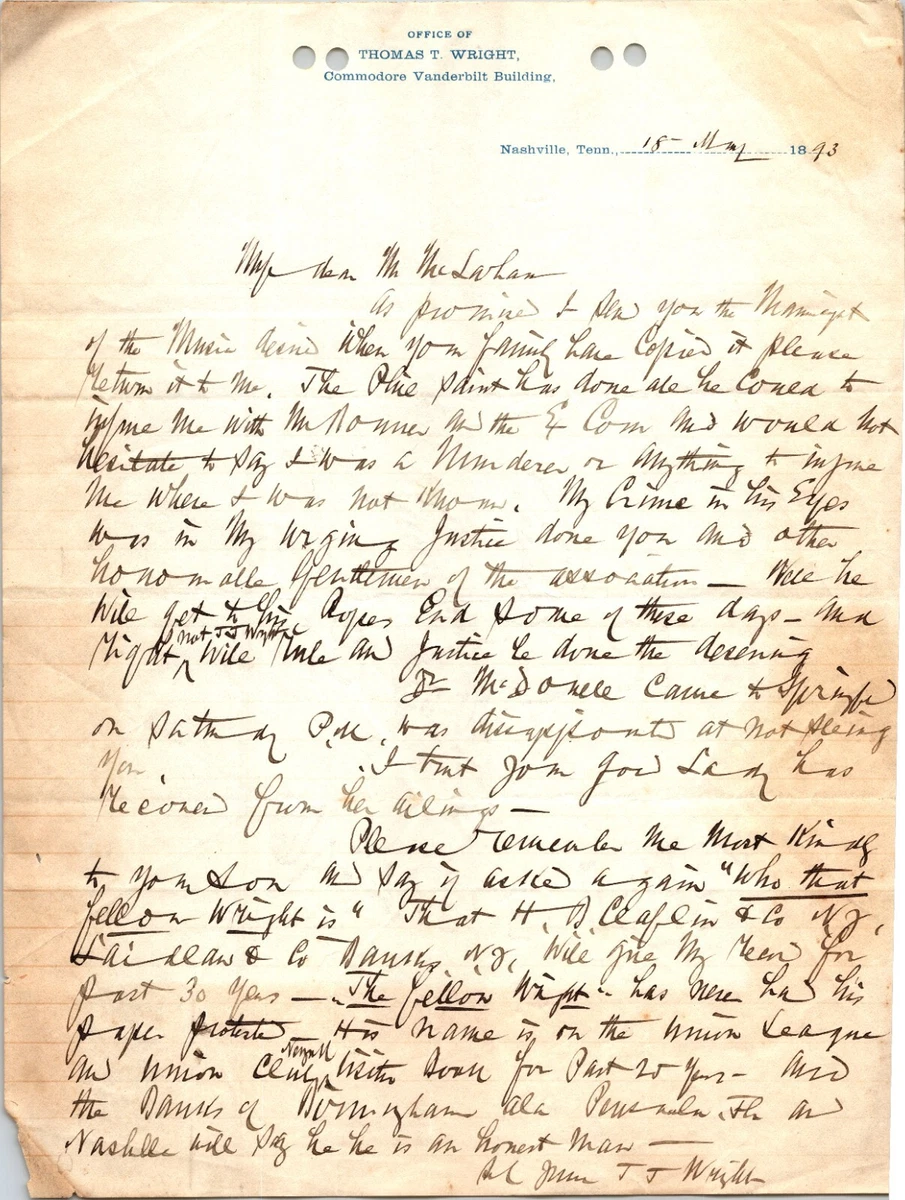 OFFICE OF
THOMAS T. WRIGHT,
Commodore Vanderbilt Building,
Nashville, Tenn., 18 May 1893
My dear Mr
As promised I send you the
of the Music desired When your family have Copied it please
return it to me. The Saint has done all he Could to
injure me with Mr Bonner and the Ex Com and would not
hesitate to say I was a Murderer or anything to injure
me where I was not Known. My Crime in his Eyes
was in My urging Justice done you and other
honorable Gentlemen of the association — Well he
will get to his Ropes End some of these days — and
right, not T T Wright, will rule and Justice be done the deserving
Dr McDonell Came to
on Saturday P.M. was disappointed at not seeing
you. I trust your good Lady has
recovered from her ailings —
Please remember me Most Kindly
to your Son and say if asked again "Who that
fellow Wright is" That H. B. Claflin & Co N.Y.,
Laidlaw & Co Banks N.Y., Will give My record for
past 30 years — "The fellow Wright" has never had his
paper protested His name is on the Union League
and Union Club, N York Visitors Book for Past 20 years — and
the Banks of Birmingham Ala Pensacola Fla and
Nashville will say he he is an honest man —
T T Wright